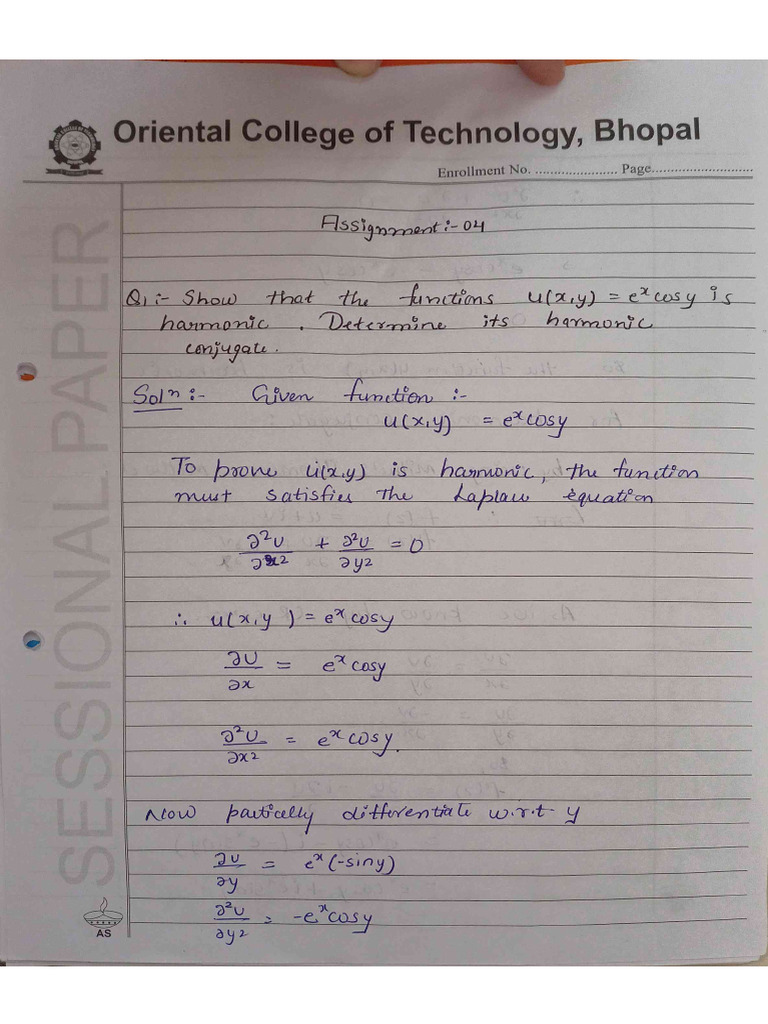 Oriental College of Technology, Bhopal
Enrollment No. ...................... Page...........................
SESSIONAL PAPER
Assignment:- 04
Q1:- Show that the functions u(x,y) = e^x cosy is
harmonic. Determine its harmonic
conjugate.
Solⁿ:- Given function :-
u(x,y) = e^x cosy
To prove u(x,y) is harmonic, the function
must satisfies the Laplace equation
∂²U/∂x² + ∂²U/∂y² = 0
∴ u(x,y) = e^x cosy
∂U/∂x = e^x cosy
∂²U/∂x² = e^x cosy.
Now partically differentiate w.r.t y
∂U/∂y = e^x(-siny)
∂²U/∂y² = -e^x cosy
AS